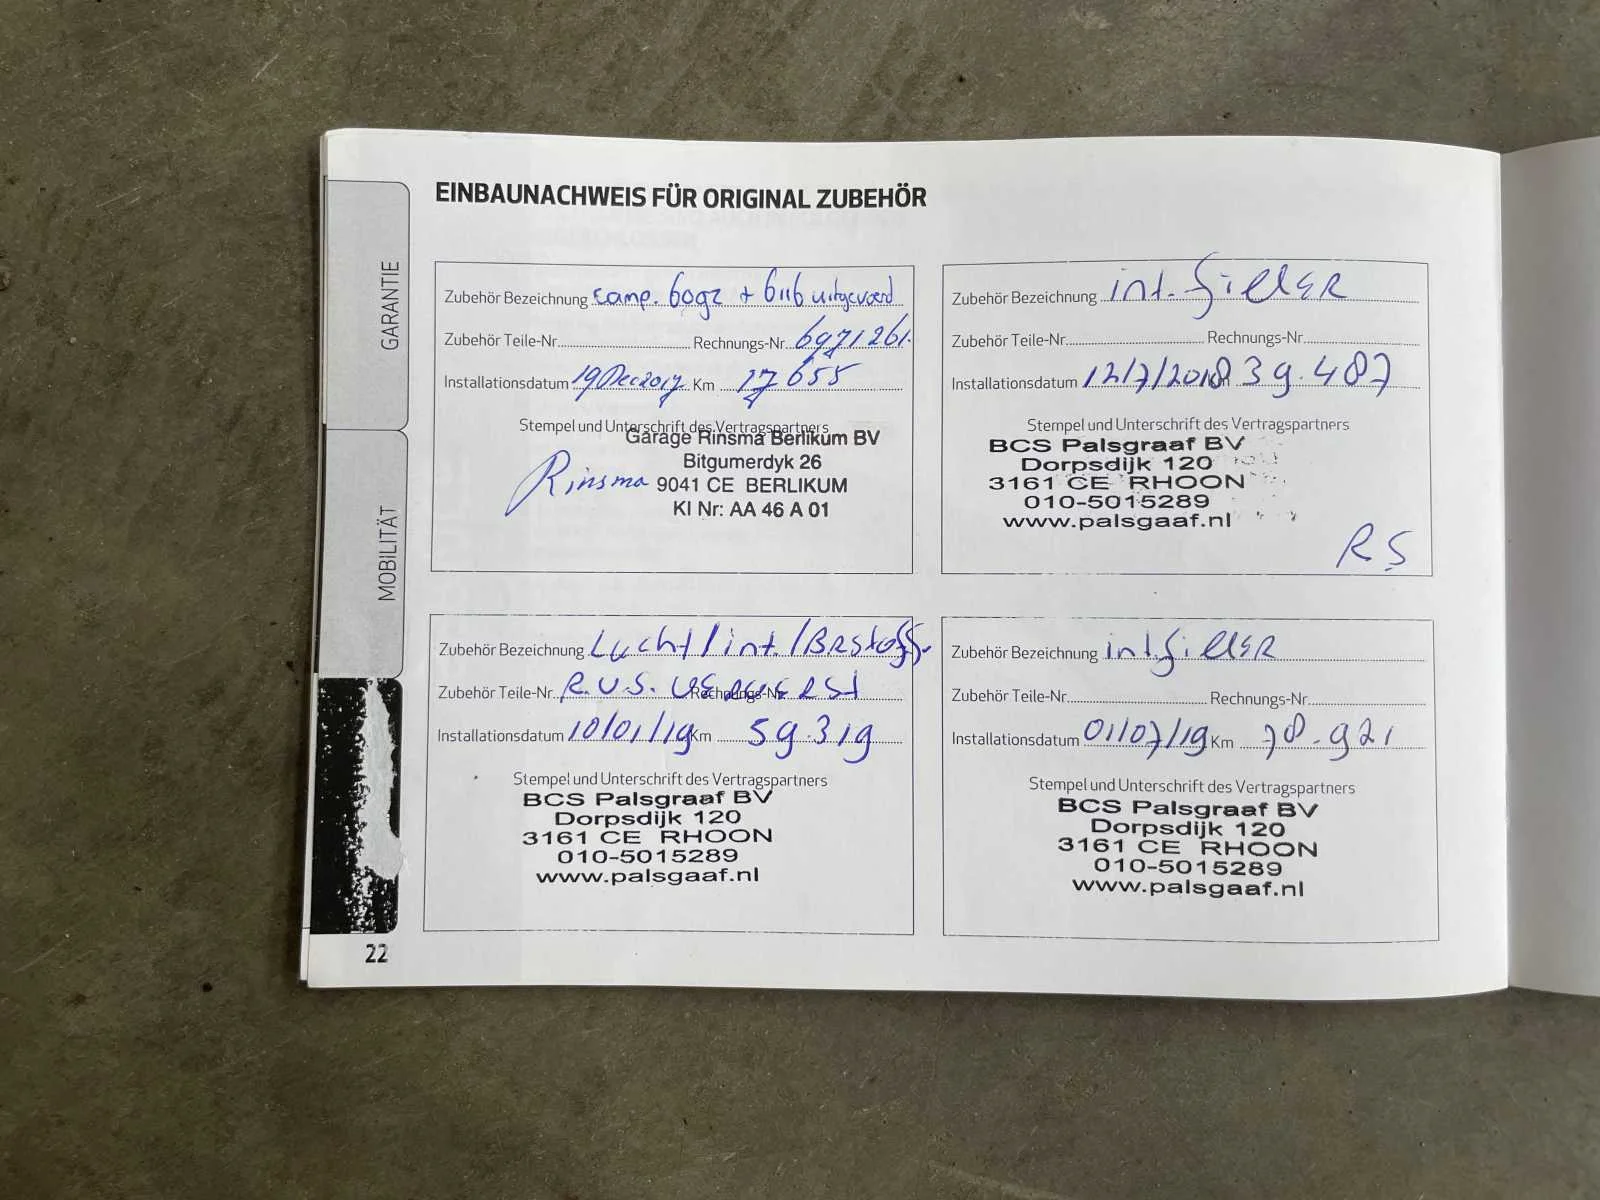 EINBAUNACHWEIS FÜR ORIGINAL ZUBEHÖR
GARANTIE
MOBILITÄT
Zubehör Bezeichnung camp. 6092 + 6116 uitgevoerd
Zubehör Teile-Nr. Rechnungs-Nr. 6971261.
Installationsdatum 19 Dec 2017 Km 17655
Stempel und Unterschrift des Vertragspartners
Garage Rinsma Berlikum BV
Bitgumerdyk 26
Rinsma 9041 CE BERLIKUM
KI Nr: AA 46 A 01
Zubehör Bezeichnung int. FilteR
Zubehör Teile-Nr. Rechnungs-Nr.
Installationsdatum 12/7/2018 39.487
Stempel und Unterschrift des Vertragspartners
BCS Palsgraaf BV
Dorpsdijk 120
3161 CE RHOON
010-5015289
www.palsgaaf.nl
RS
Zubehör Bezeichnung Lucht/int./BRstoff
Zubehör Teile-Nr. R.V.S. Rechnungs-Nr.
Installationsdatum 10/01/19 Km 59.319
Stempel und Unterschrift des Vertragspartners
BCS Palsgraaf BV
Dorpsdijk 120
3161 CE RHOON
010-5015289
www.palsgaaf.nl
Zubehör Bezeichnung int. FilteR
Zubehör Teile-Nr. Rechnungs-Nr.
Installationsdatum 01/07/19 Km 78.921
Stempel und Unterschrift des Vertragspartners
BCS Palsgraaf BV
Dorpsdijk 120
3161 CE RHOON
010-5015289
www.palsgaaf.nl
22